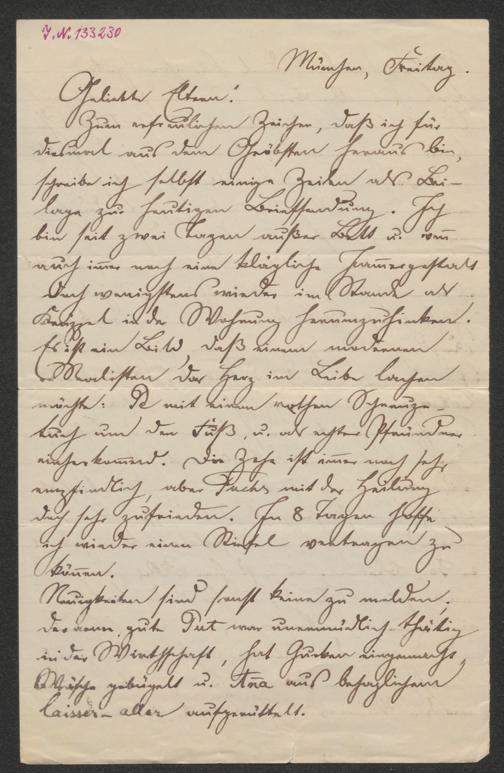 J. N. 133230
München, Freitag.
Geliebte Eltern!
Zum erfreulichen Zeichen, daß ich für
diesmal aus dem Gröbsten heraus bin,
schreibe ich selbst einige Zeilen als Bei-
lage zur heutigen Briefsendung. Ich
bin seit zwei Tagen außer Bett u. wenn
auch immer noch eine klägliche Jammergestalt
doch wenigstens wieder im Stande als
Krüppel in der Wohnung herumzuhinken.
Es ist ein Bild, daß einem modernen
Realisten das Herz im Leibe lachen
möchte: mit einem rothen Schnupf-
tuch um den Fuß, u. als echter Pfründner
einherkommend. Die Zehe ist immer noch sehr
empfindlich, aber Fuchs mit der Heilung
doch sehr zufrieden. In 8 Tagen hoffe
ich wieder einen Stiefel vertragen zu
können.
Neuigkeiten sind sonst keine zu melden,
gute war unermüdlich thätig
in der Wirthschaft, hat Gurken eingemacht,
Wäsche gebügelt u. Anna aus behaglichem
laisser-aller aufgerüttelt.